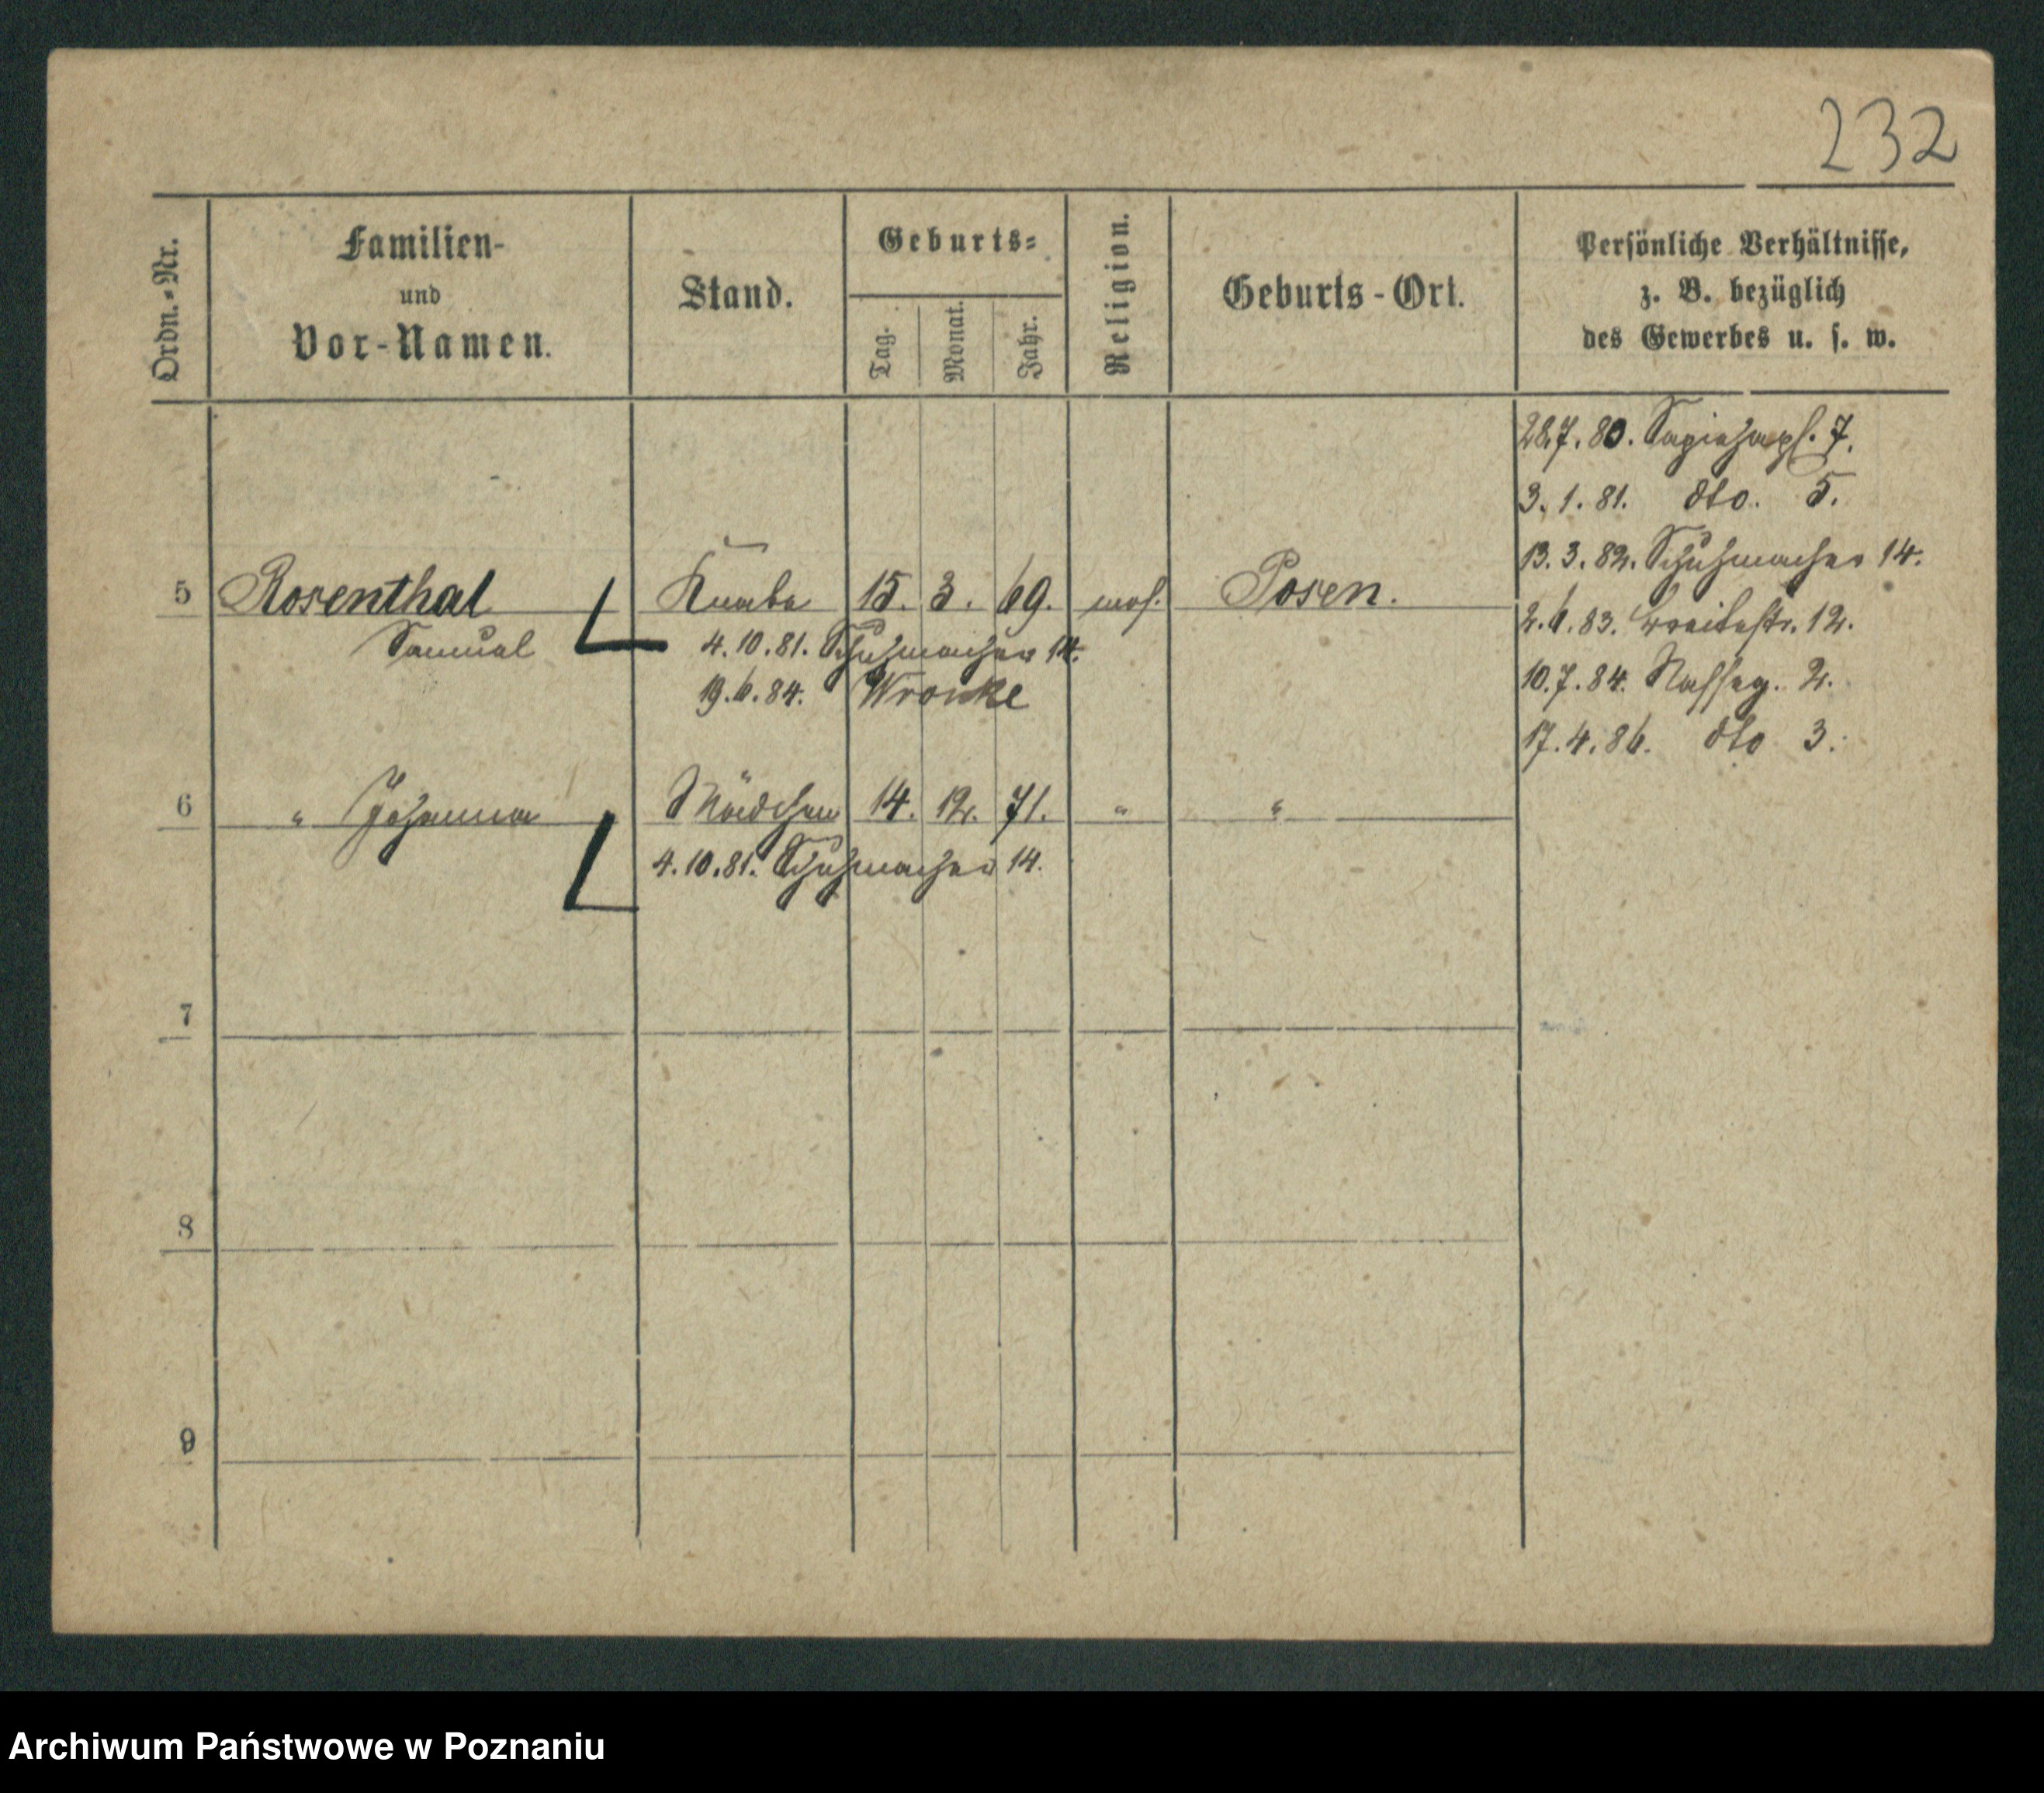 232
Ordn.-Nr.
Familien-
und
Vor-Namen.
Stand.
Geburts-
Tag.
Monat.
Jahr.
Religion.
Geburts-Ort.
Persönliche Verhältnisse,
z. B. bezüglich
des Gewerbes u. s. w.
28.7.80. Sapiehapl. 7.
3.1.81. dto. 5.
13.3.82. Schuhmacher 14.
2.6.83. Breitestr. 12.
10.7.84. Naßeg. 2.
17.4.86. dto 3.
5 Rosenthal Knabe 15. 3. 69. mos. Posen.
Samuel 4.10.81. Schuhmacher 14.
19.6.84. Wronke
6 " Johanna Mädchen 14. 12. 71. " "
4.10.81. Schuhmacher 14.
7
8
9
Archiwum Państwowe w Poznaniu